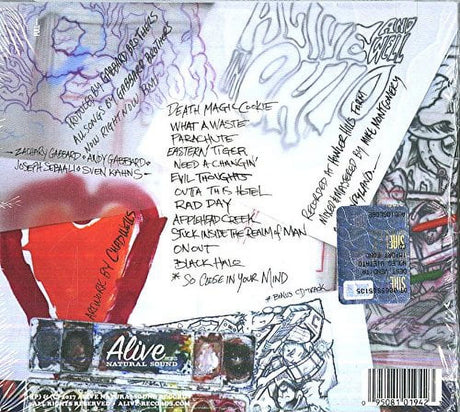 ALIVE
AND
WELL
IN
OHIO
PRODUCED BY GABBARD BROTHERS
ALL SONGS BY GABBARD BROTHERS
NOW RIGHT NOW
ZACHARY GABBARD • ANDY GABBARD •
JOSEPH SEBAALI • SVEN KAHNS
DEATH MAGIC COOKIE
WHAT A WASTE
PARACHUTE
EASTERN TIGER
NEED A CHANGIN'
EVIL THOUGHTS
OUTTA THIS HOTEL
RAD DAY
APPLEHEAD CREEK
STUCK INSIDE THE REALM OF MAN
ON OUT
BLACK HALO
* SO CLOSE IN YOUR MIND
* BONUS CD TRACK
RECORDED AT HILLS FARM
MIXED & MASTERED BY MIKE MONTGOMERY
ARTWORK BY
SIAE
SIAE
Alive
NATURAL SOUND
(P) & (C) 2017 ALIVE NATURALSOUND RECORDS
ALL RIGHTS RESERVED / ALIVE-RECORDS.COM
0 95081 01942